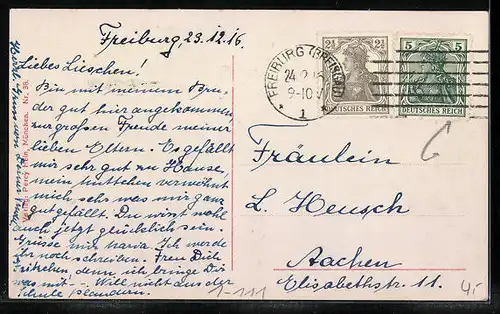 Freiburg, 23.12.16.
Liebes Lieschen!
Bin mit meinem Bru-
der gut hier angekommen,
zur grossen Freude meiner
lieben Eltern. Es gefällt
mir sehr gut zu Hause,
mein Muttchen verwöhnt
mich sehr was mir ganz
gut gefällt. Du wirst wohl
auch jetzt glücklich sein.
Grüsse mir Maria. Ich werde
ihr noch schreiben. Freu Dich
denn ich bringe Dir
was mit -- Will nicht aus der
Schule plaudern.
München. Nr. 98.
FREIBURG (BREISGAU)
9-10 V
1
2½ 2½
DEUTSCHES REICH
5 5
DEUTSCHES REICH
Fräulein
L. Heusch
Aachen
Elisabethstr. 11.
1-111
4,-